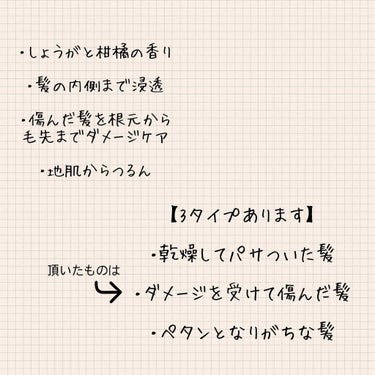 ・しょうがと柑橘の香り
・髪の内側まで浸透
・傷んだ髪を根元から
毛先までダメージケア
・地肌からつるん
【3タイプあります】
・乾燥してパサついた髪
頂いたものは
・ダメージを受けて傷んだ髪
・ペタンとなりがちな髪